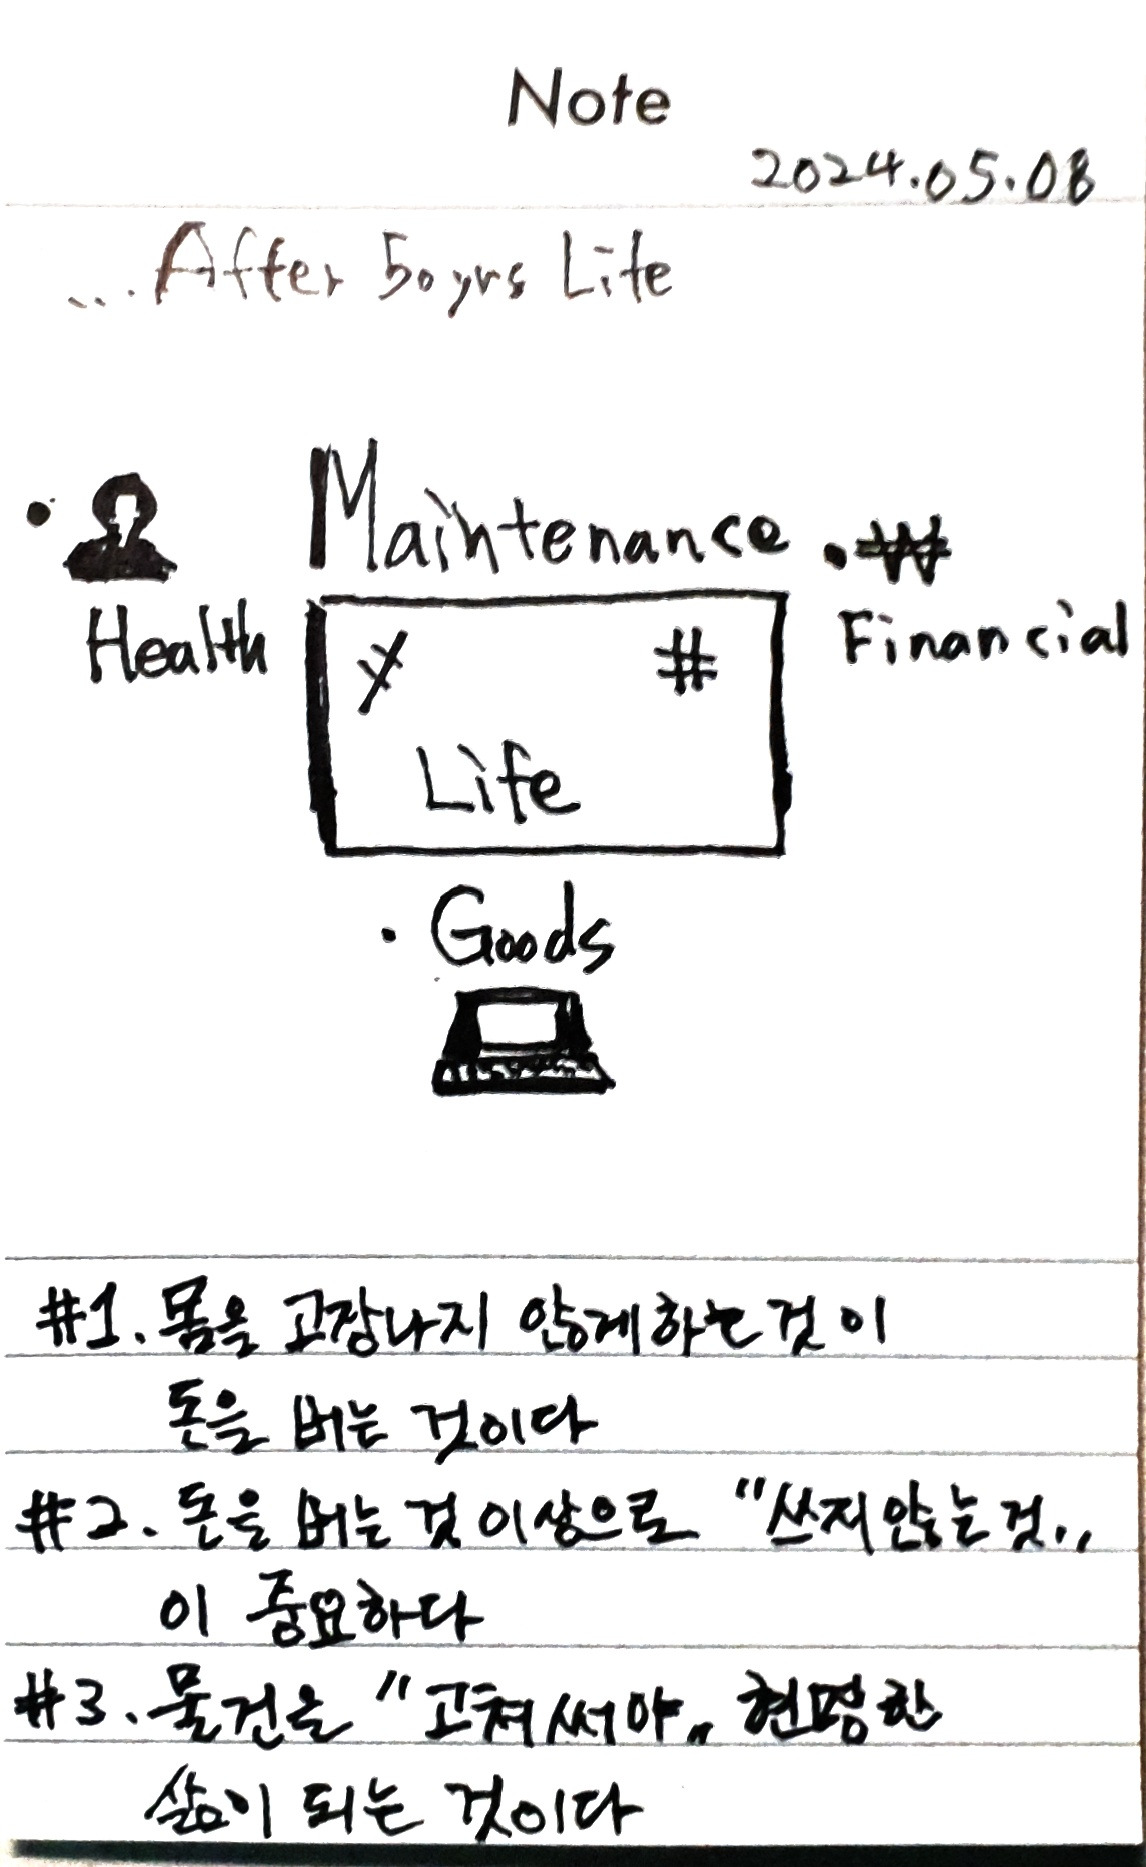 Note
2024.05.08
... After 50yrs Life
Maintenance
Health
₩
Financial
#
Life
Goods
#1. 몸을 고장나지 않게하는것이
돈을 버는 것이다
#2. 돈을 버는것 이상으로 "쓰지않는것"
이 중요하다
#3. 물건을 "고쳐써야" 현명한
삶이 되는 것이다